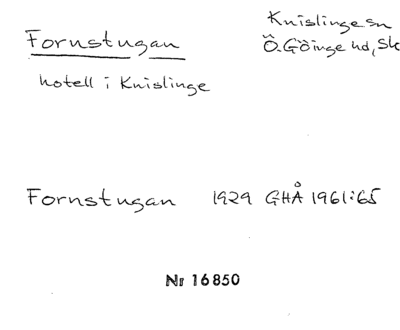 Fornstugan
Knislinge sn
Ö. Göinge hd, Sk
hotell i Knislinge
Fornstugan 1929 GHÅ 1961:65
Nr 16850